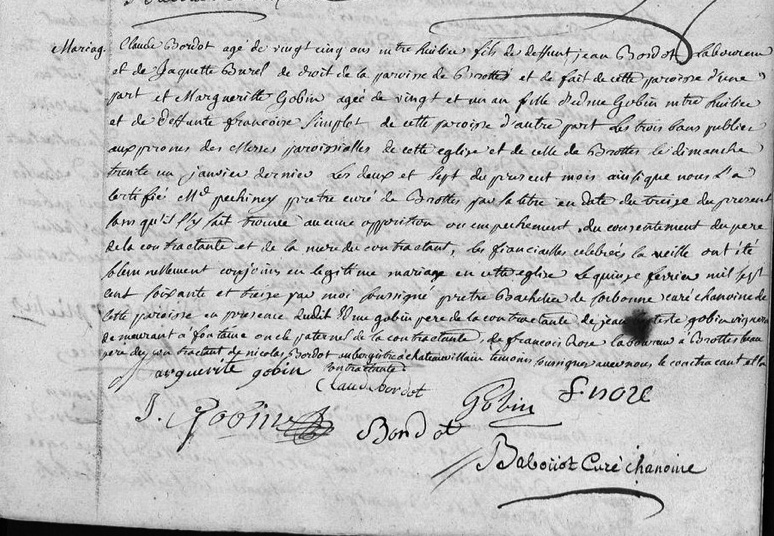 Mariag. Claude Bordot agé de vingt cinq ans mtre huilier fils de deffunt jean Bordot Laboureur
et de Jaquette Burel de droit de la paroisse de Brottes et de fait de cette paroisse d'une
part et Margueritte Gobin agée de vingt et un an fille d'edme Gobin mtre huilier
et de deffunte francoise Simplot de cette paroisse d'autre part les trois bans publiés
aux prones des Messes paroissialles de cette eglise et de celle de Brottes le dimanche
trente un janvier dernier les deux et sept du present mois ainsi que nous l'a
certifié Mr pechiney pretre curé de Brottes par sa lettre en date du treize du present
sans qu'il s'y soit trouvée aucune opposition ou empechement, du consentement du pere
de la contractante et de la mere du contractant, les fiancialles celebrées la veille ont été
solemnellement conjoins en legitime mariage en cette eglise le quinze fevrier mil sept
cent soixante et treize par moi soussigné pretre Bachelier de sorbonne curé chanoine de
cette paroisse en presence dudit Edme gobin pere de la contractante de jean gobin vigneron
demeurant à fontaine oncle paternel de la contractante, de francois laboureur à Brottes beau
pere du contractant de nicolas Bordot aubergiste à chateauvillain temoins soussignés avec nous le contractant et la
contractante
marguerite gobin
Claude bordot
Gobin
J. Gobin
Bordot
Babouot Curé chanoine